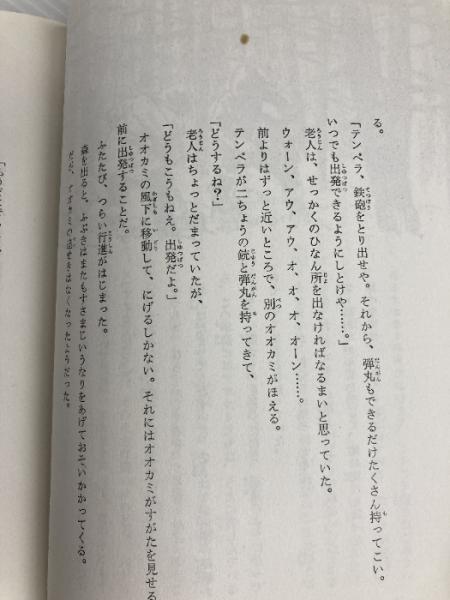 る。
「テンペラ、鉄砲をとり出せや。それから、弾丸もできるだけたくさん持ってこい。
いつでも出発できるようにしとけや……。」
老人は、せっかくのひなん所を出なければなるまいと思っていた。
ウォーン、アウ、アウ、オ、オ、オ、オーン……。
前よりはずっと近いところで、別のオオカミがほえる。
テンペラが二ちょうの銃と弾丸を持ってきて、
「どうするね？」
老人はちょっとだまっていたが、
「どうもこうもねえ。出発だよ。」
オオカミの風下に移動して、にげるしかない。それにはオオカミがすがたを見せる
前に出発することだ。
ふたたび、つらい行進がはじまった。
森を出ると、ふぶきはまたもすさまじいうなりをあげておそいかかってくる。
だが、オオカミの遠ぼえはなくなったようだった。